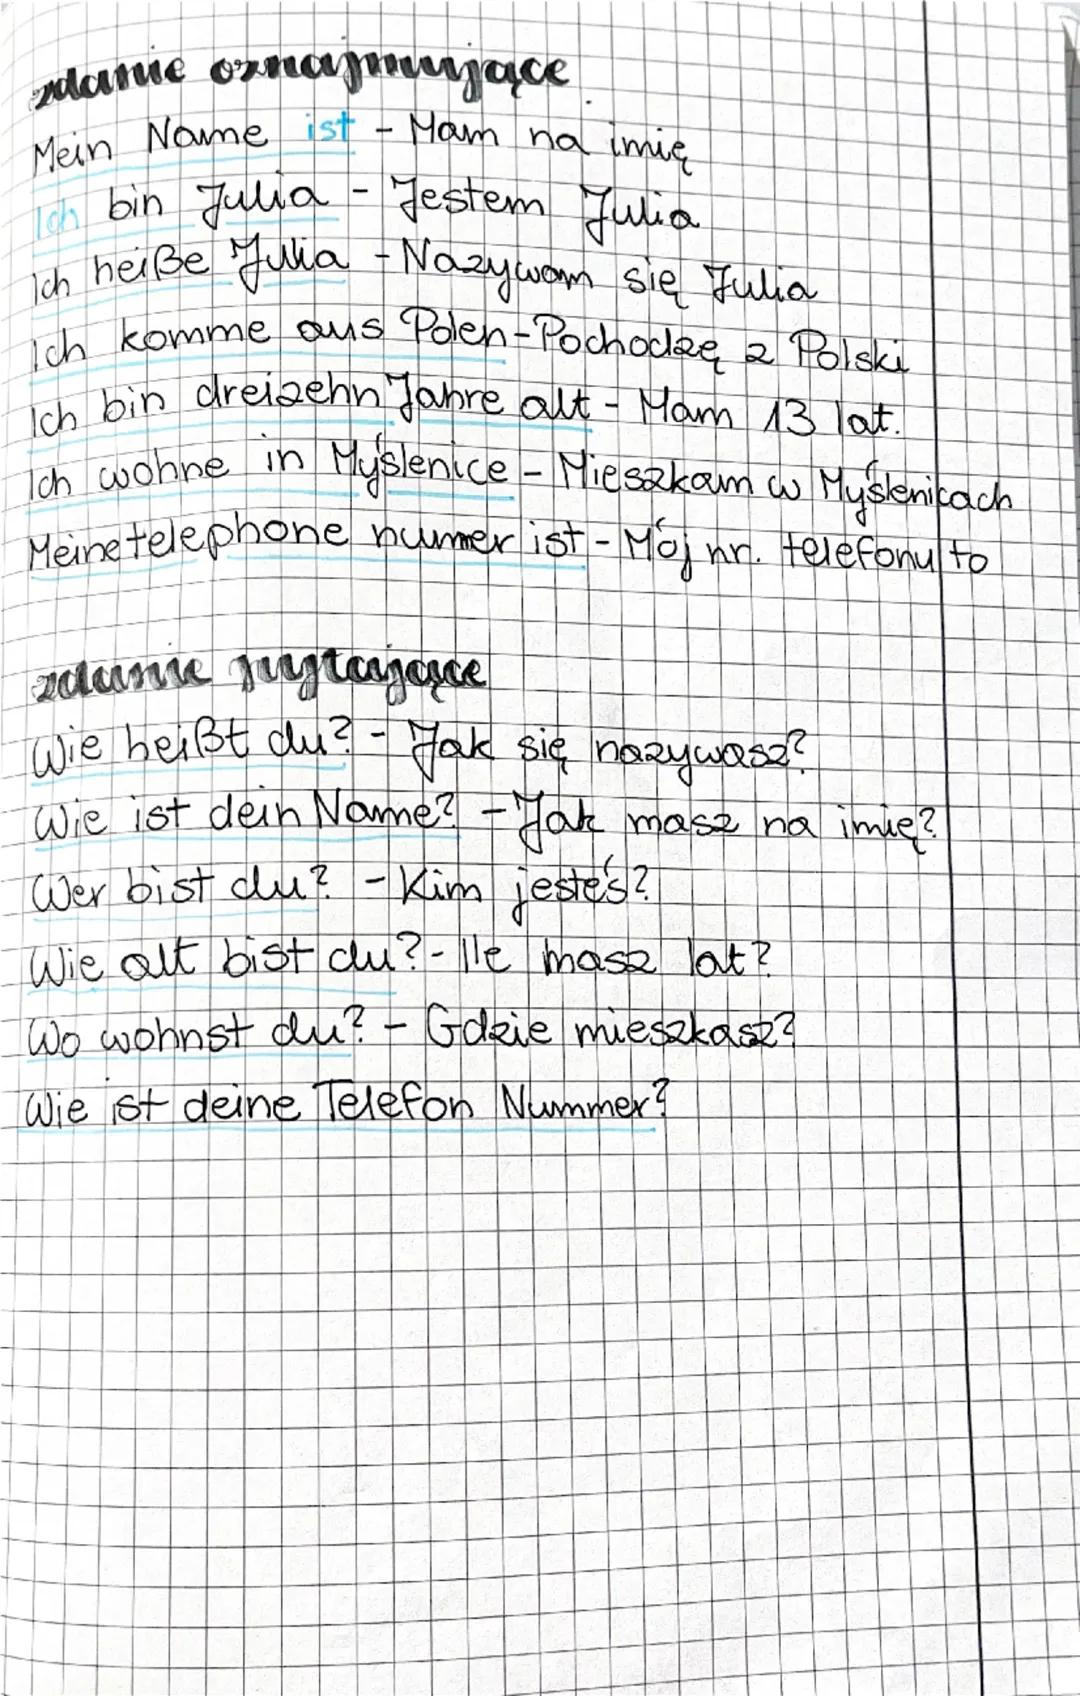 zdanie oznajmujące
Mein Name ist - Mam na imię
Ich bin Julia - Jestem Julia
Ich heiße Julia - Nazywam się Julia
Ich komme aus Polen - Pochodzę z Polski
Ich bin dreizehn Jahre alt - Mam 13 lat.
Ich wohne in Myślenice - Mieszkam w Myślenicach
Meine telephone numer ist - Mój nr. telefonu to
zdanie pytające
Wie heißt du? - Jak się nazywasz?
Wie ist dein Name? - Jak masz na imię?
Wer bist du? - Kim jesteś?
Wie alt bist du? - Ile masz lat?
Wo wohnst du? - Gdzie mieszkasz?
Wie ist deine Telefon Nummer?